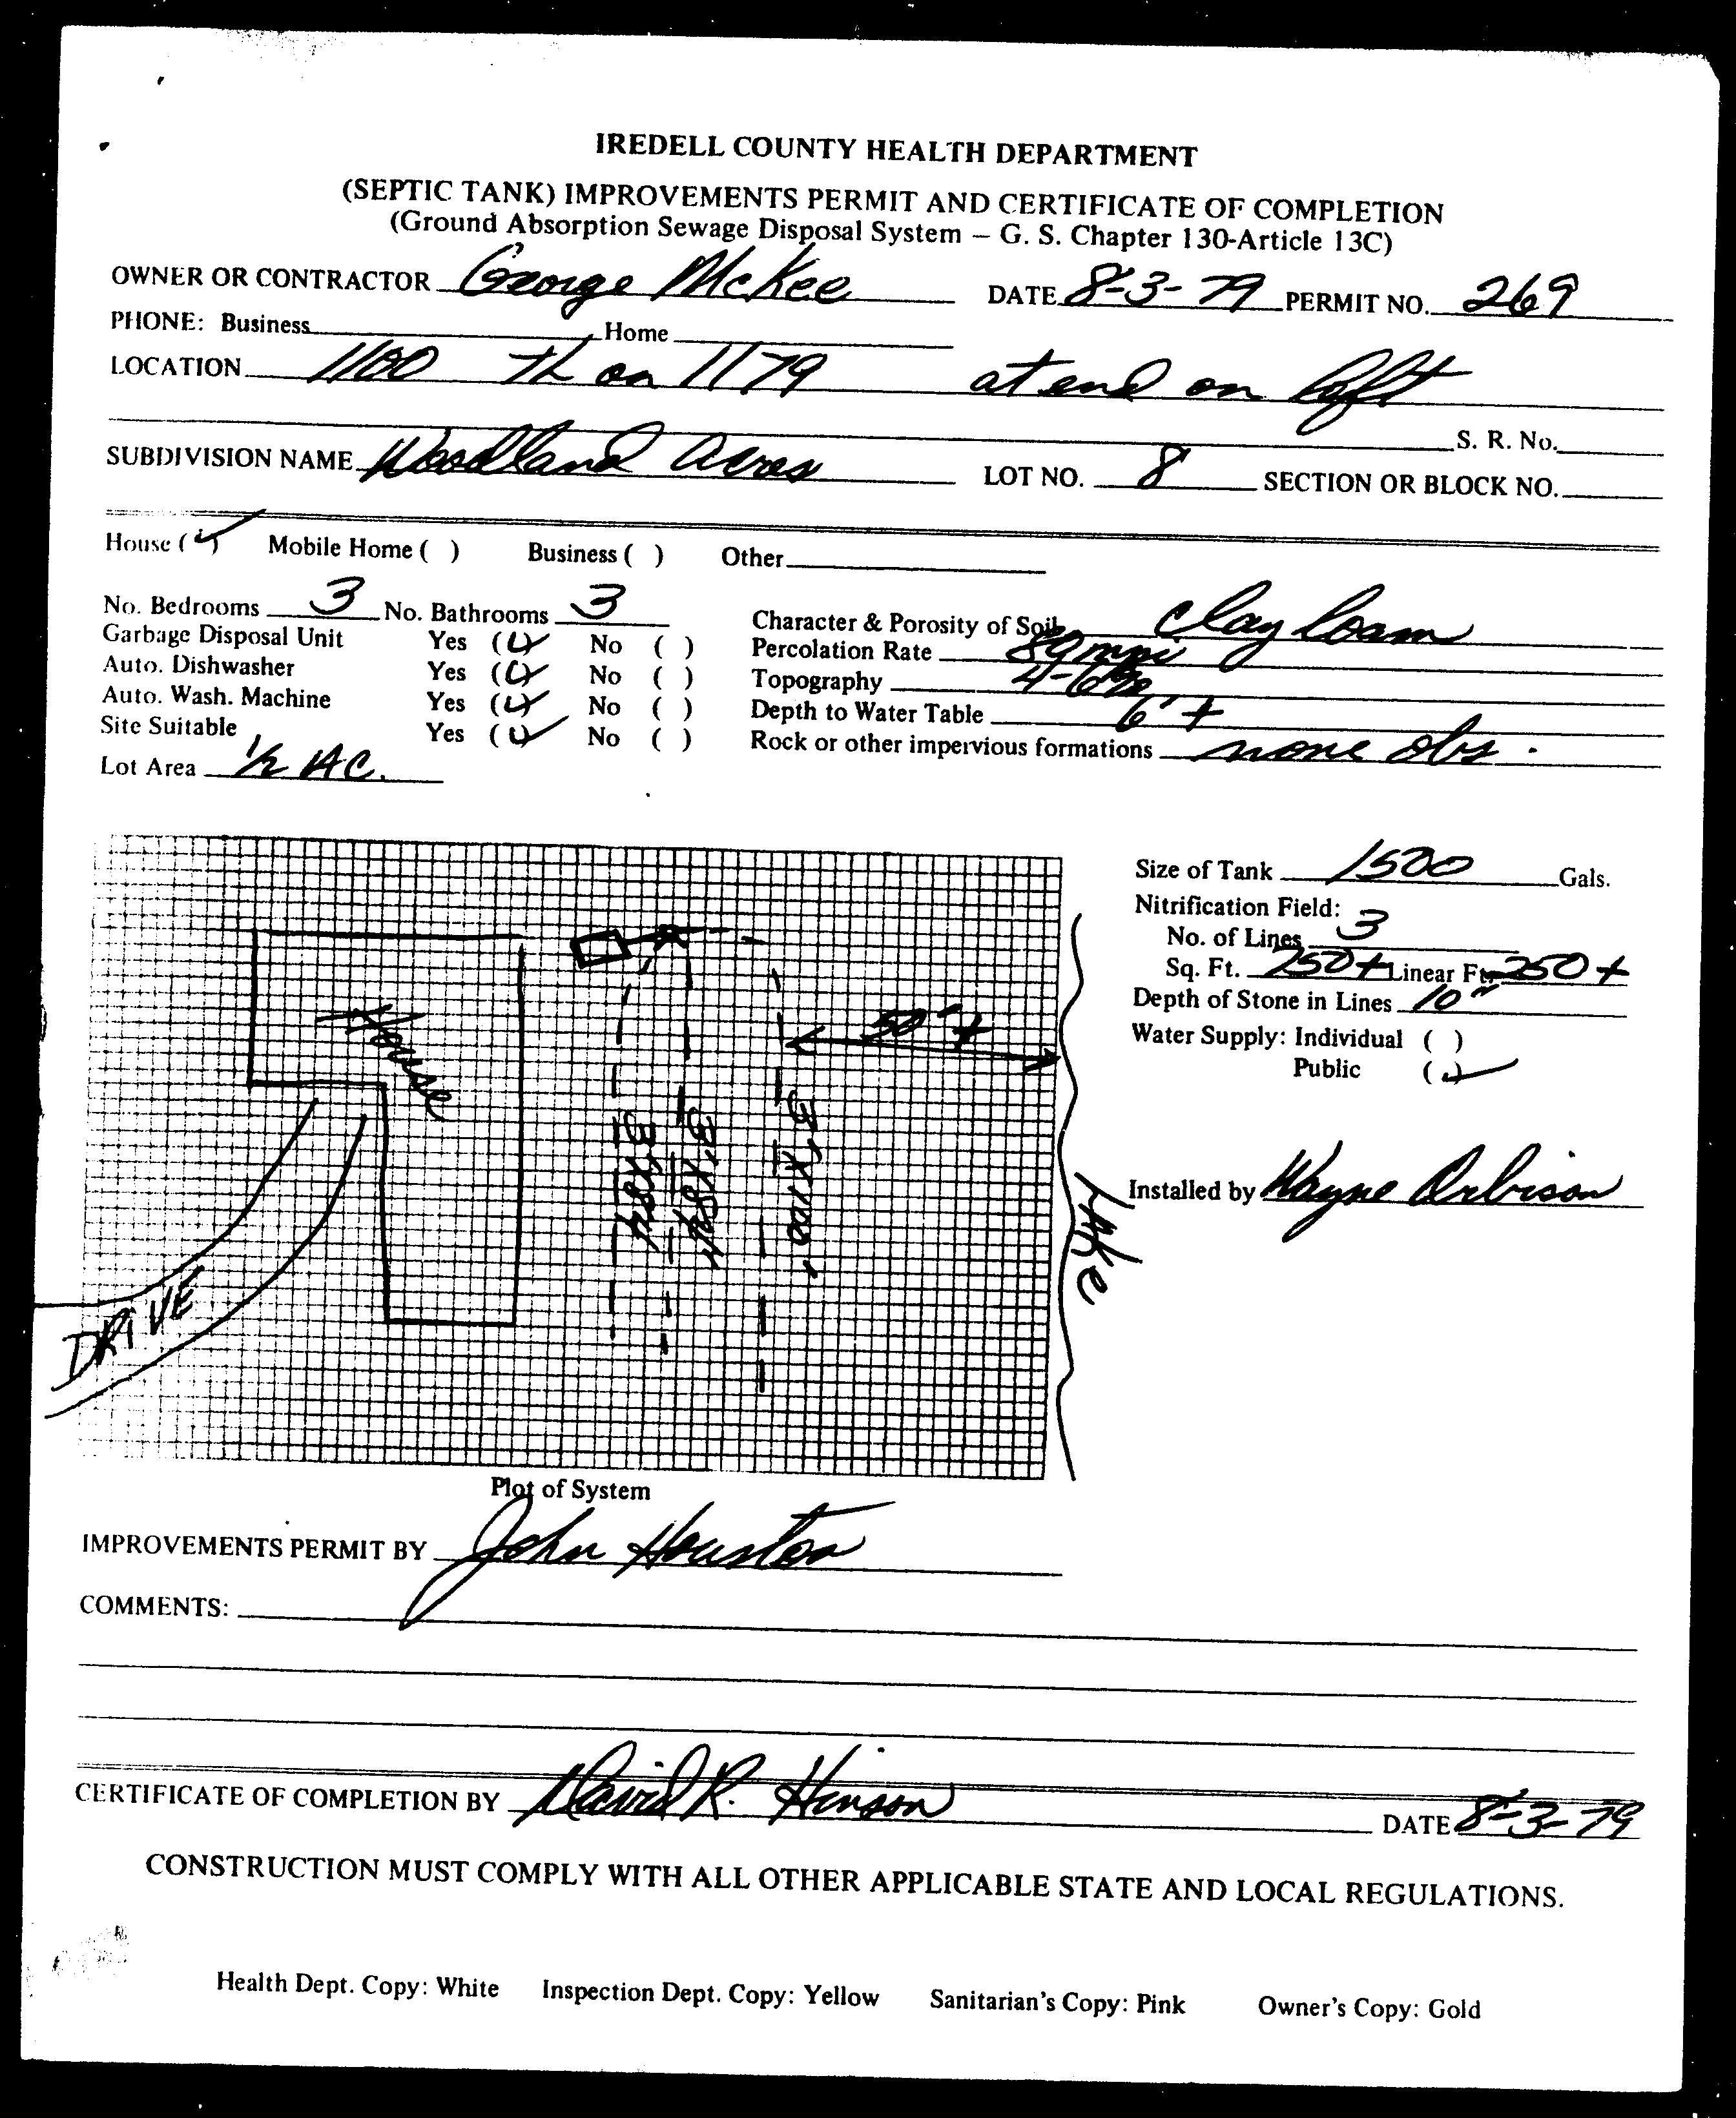 IREDELL COUNTY HEALTH DEPARTMENT
(SEPTIC TANK) IMPROVEMENTS PERMIT AND CERTIFICATE OF COMPLETION
(Ground Absorption Sewage Disposal System – G. S. Chapter 130-Article 13C)
OWNER OR CONTRACTOR George McKee DATE 8-3-79 PERMIT NO. 269
PHONE: Business Home
LOCATION 1100 TL on 1179 at end on left
S. R. No.
SUBDIVISION NAME Woodland Acres LOT NO. 8 SECTION OR BLOCK NO.
House (✓) Mobile Home ( ) Business ( ) Other
No. Bedrooms 3 No. Bathrooms 3 Character & Porosity of Soil clay loam
Garbage Disposal Unit Yes (✓) No ( ) Percolation Rate 89 mpi
Auto. Dishwasher Yes (✓) No ( ) Topography 4-6%
Auto. Wash. Machine Yes (✓) No ( ) Depth to Water Table 6'+
Site Suitable Yes (✓) No ( ) Rock or other impervious formations none obs.
Lot Area 1/2 AC.
Size of Tank 1500 Gals.
Nitrification Field:
No. of Lines 3
Sq. Ft. 750+ Linear Ft. 250+
Depth of Stone in Lines 10"
Water Supply: Individual ( )
Public (✓)
Installed by Wayne Orbison
House
50'+
3'X84'
3'X84'
3'X100'
LAKE
DRIVE
Plot of System
IMPROVEMENTS PERMIT BY John Houston
COMMENTS:
CERTIFICATE OF COMPLETION BY David R. Hinson DATE 8-3-79
CONSTRUCTION MUST COMPLY WITH ALL OTHER APPLICABLE STATE AND LOCAL REGULATIONS.
Health Dept. Copy: White Inspection Dept. Copy: Yellow Sanitarian's Copy: Pink Owner's Copy: Gold